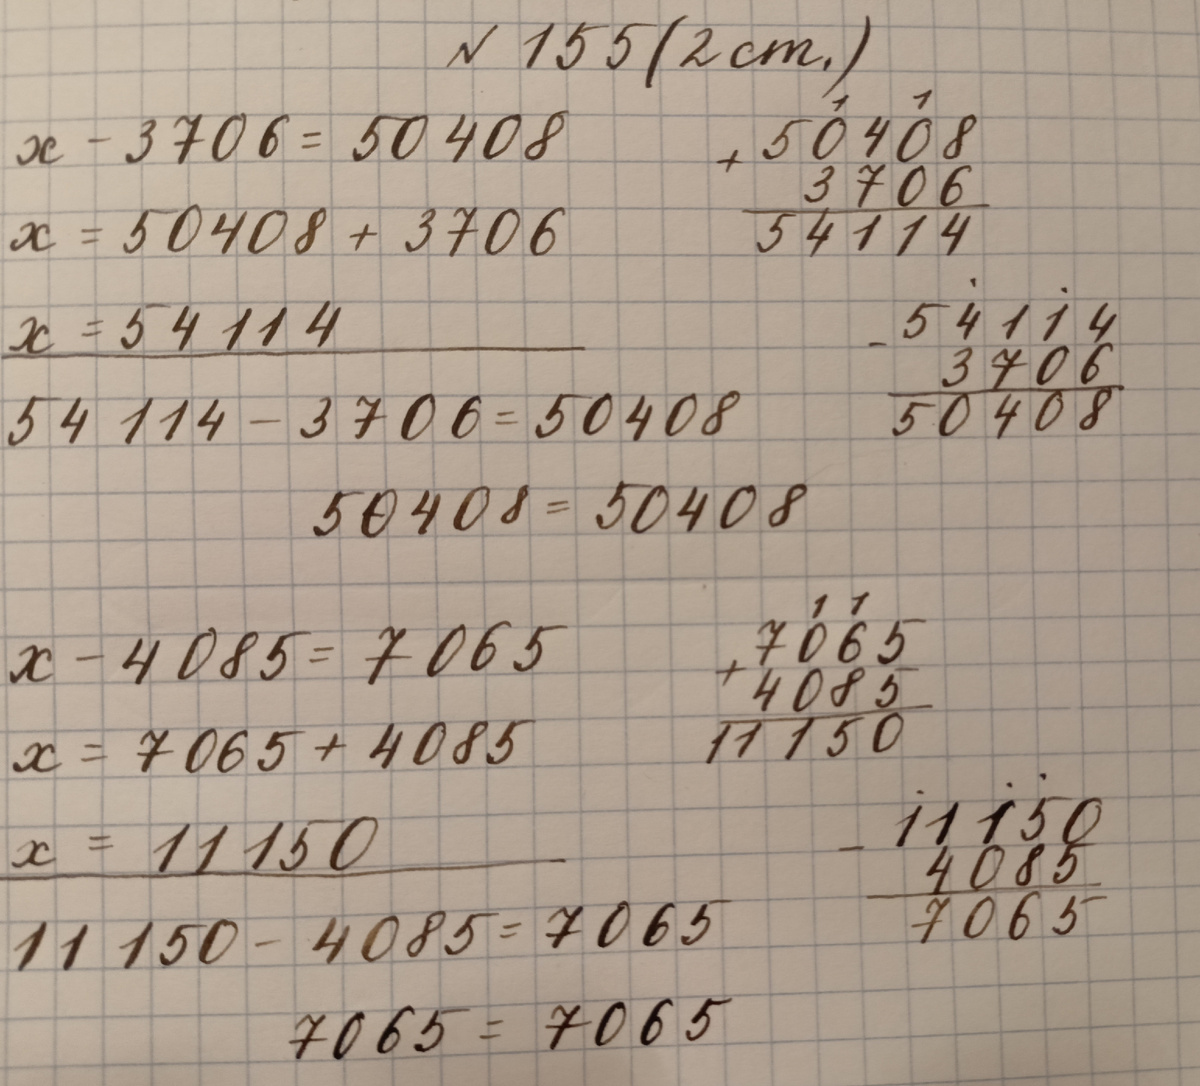 № 155 (2 ст.)
x - 3706 = 50408
x = 50408 + 3706
x = 54114
54 114 - 3706 = 50408
50408 = 50408
1 1
+ 50408
3706
54114
- 54114
3706
50408
x - 4085 = 7065
x = 7065 + 4085
x = 11150
11 150 - 4085 = 7065
7065 = 7065
1 1
+ 7065
4085
11150
- 11150
4085
7065